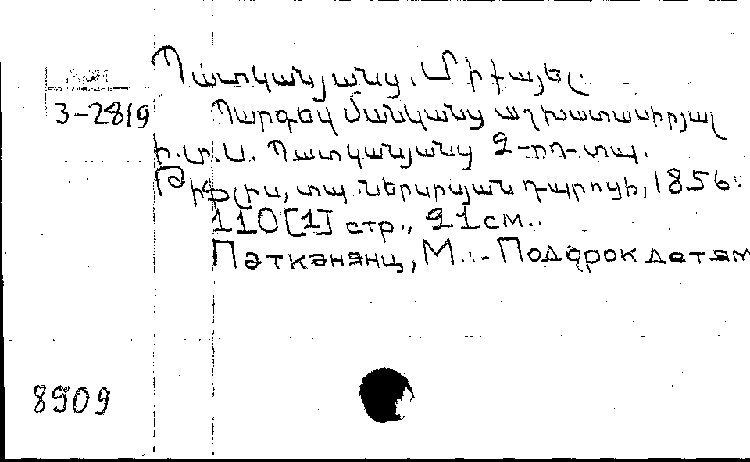 Պատկանյանց, Միքայել.
3-2819
Պարգեվ մանկանց աշխատասիրյալ
ի.տ.Մ. Պատկանյանց 2-րդ տպ.
Թիֆլիս, տպ. Ներսիսյան դպրոցի, 1856.
110[1] стр., 21 см.
Патканянц, М. - Подарок детям
8909